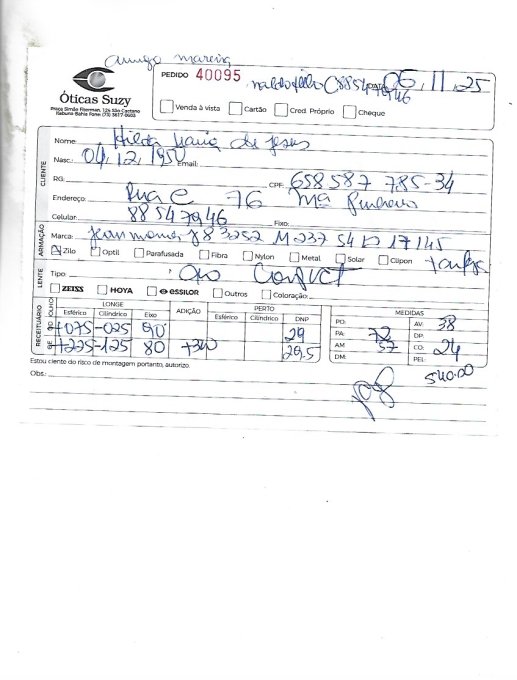 amiga
PEDIDO 40095
DATA 05,11,25
Óticas Suzy
Praça Simão Fiterman, 124 São Caetano
Itabuna Bahia Fone: (73) 3617-8603
Venda à vista Cartão Cred. Próprio Cheque
CLIENTE
Nome: Hilda Maria de Jesus
Nasc.: 04,12,1950 Email:
RG: CPF: 658 587 785-34
Endereço: Rua C 76 Mª Pinheiro
Celular: 88547946 Fixo:
ARMAÇÃO
Marca: J8 3252 M-237 54 17 145
Zilo Optil Parafusada Fibra Nylon Metal Solar Clipon
LENTE
Tipo:
ZEISS HOYA essilor Outros Coloração:
RECEITUÁRIO
OLHO LONGE ADIÇÃO PERTO MEDIDAS
Esférico Cilíndrico Eixo Esférico Cilíndrico DNP
+075 -025 90 29
+225 -125 80 +300 29.5
PO: AV: 38
PA: 72 DP:
AM: 57 CO: 24
DM: PEL:
540.00
Estou ciente do risco de montagem portanto, autorizo.
Obs.: